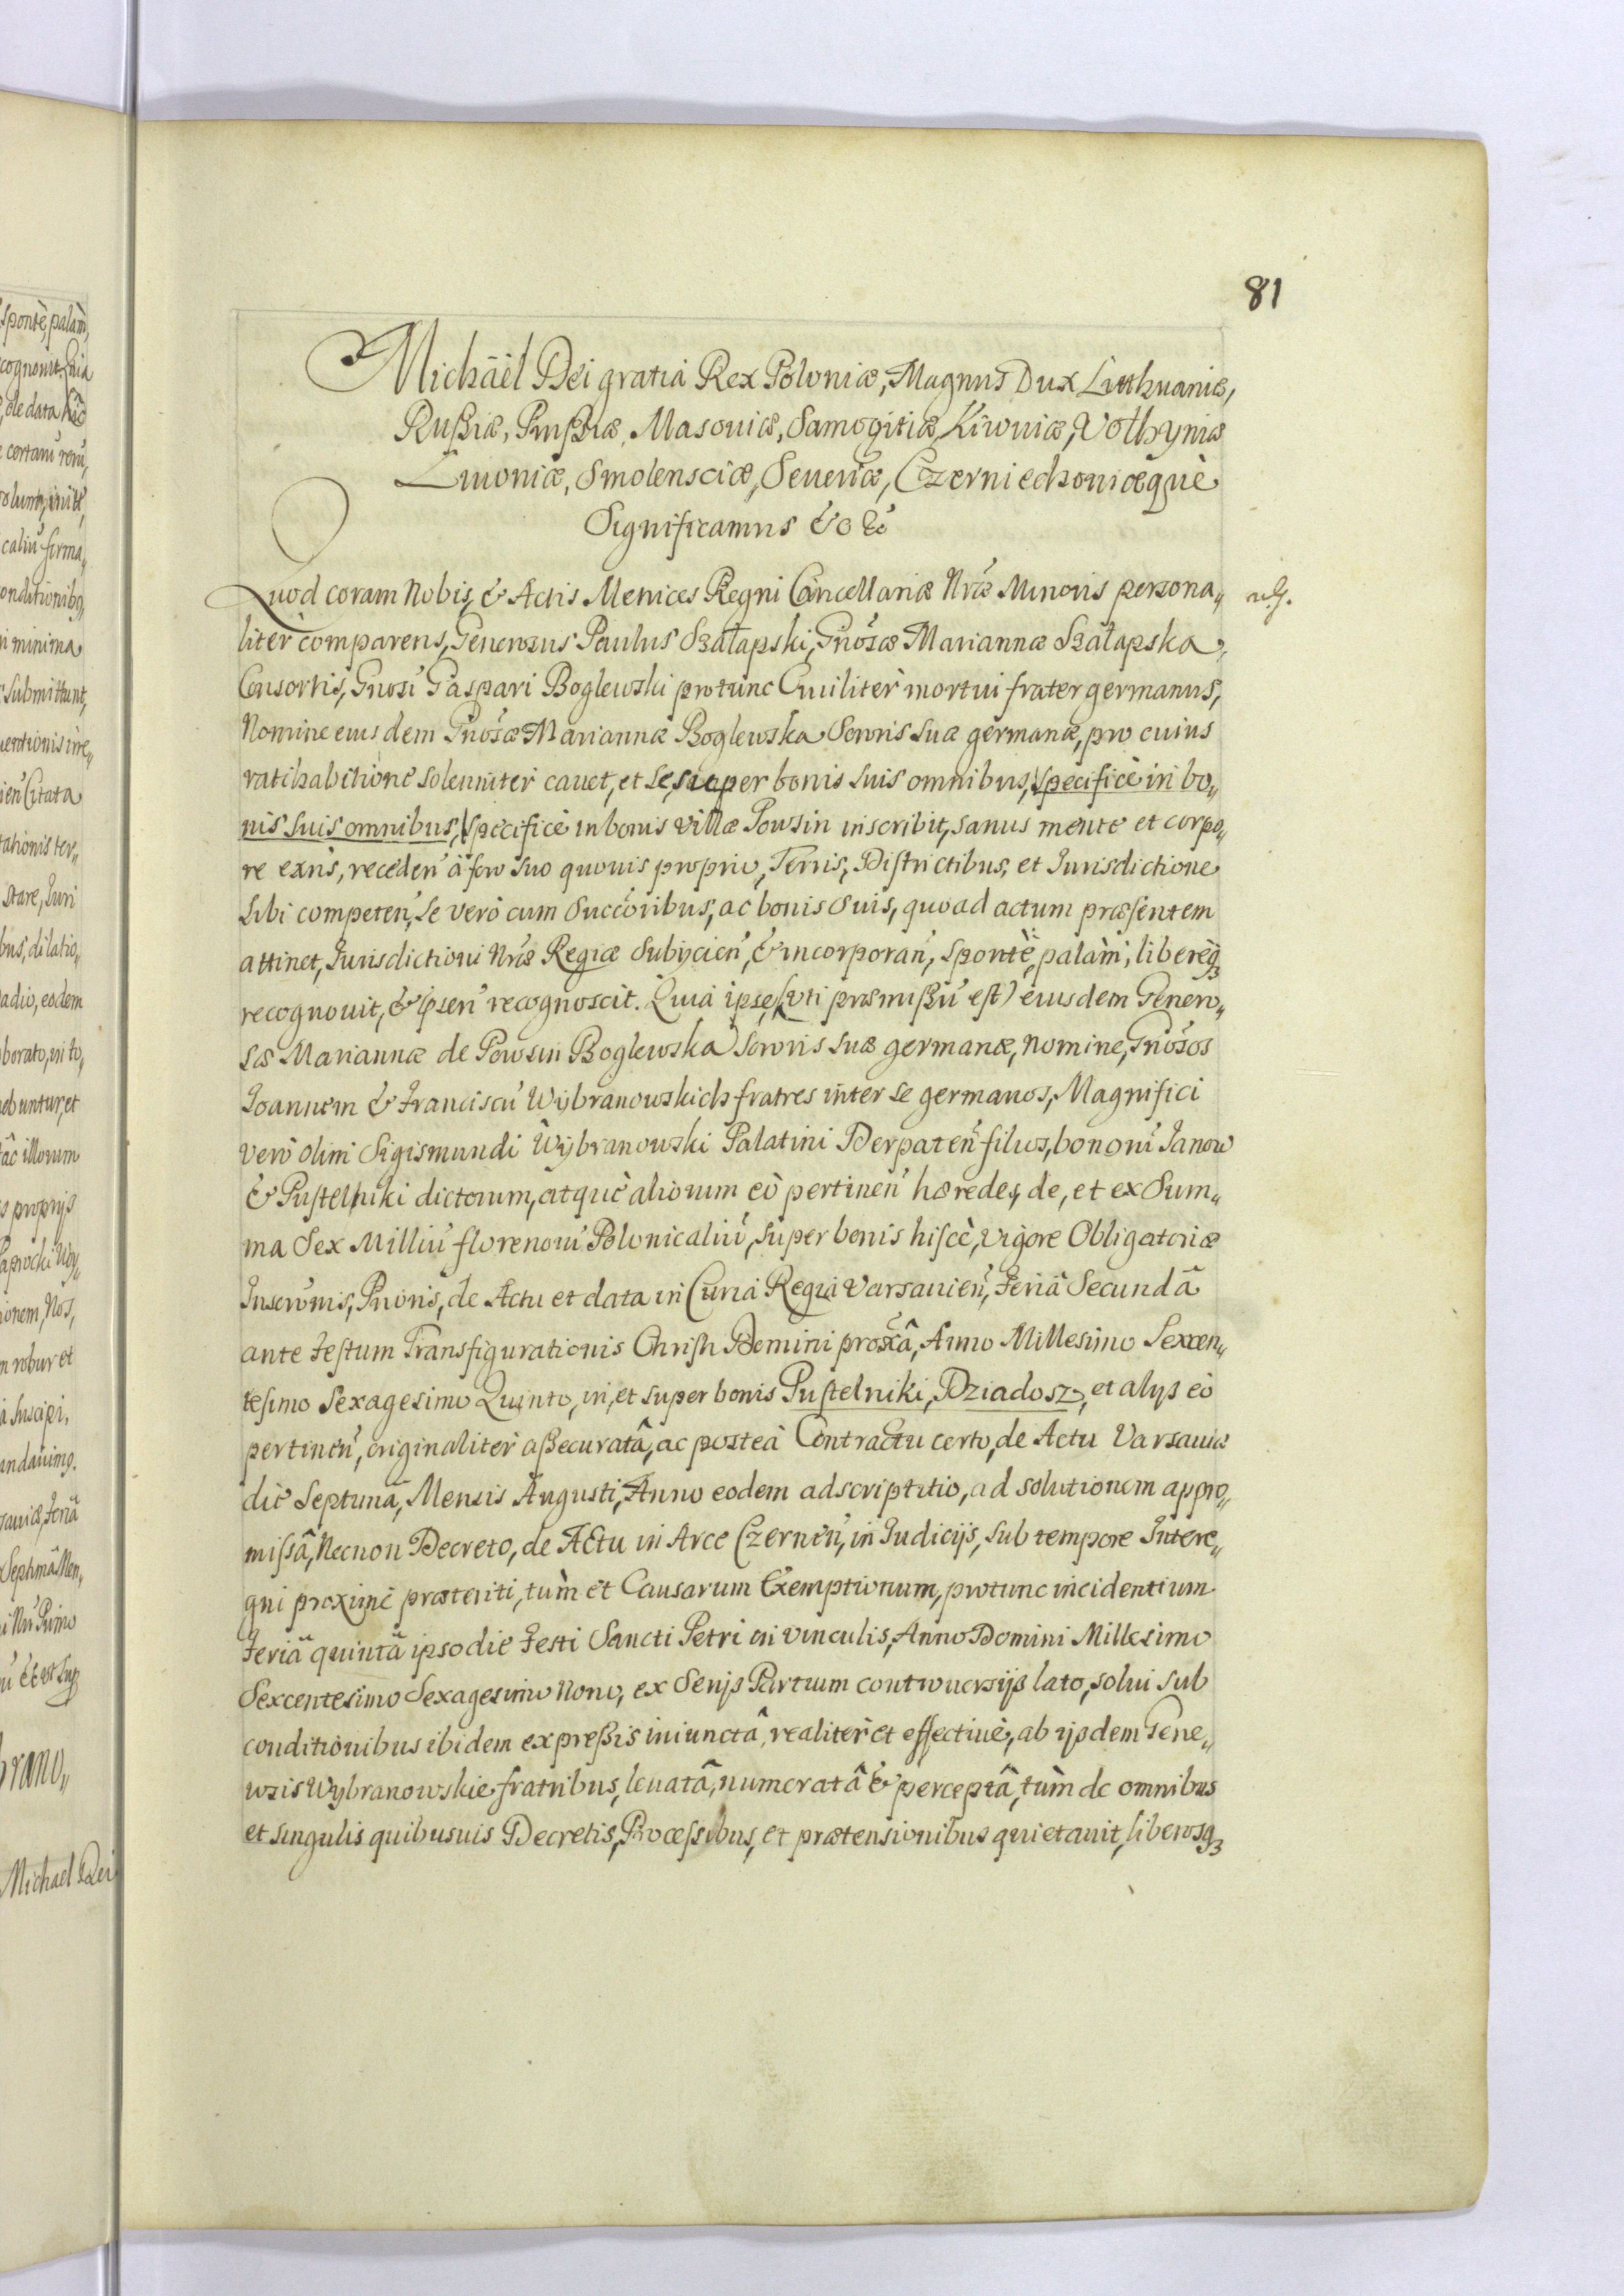 81
Michaël Dei gratia Rex Poloniæ, Magnus Dux Litthuaniæ,
Rußiæ, Prußiæ, Masouiæ, Samogitiæ, Kiiouiæ, Volhyniæ
Liuoniæ, Smolensciæ, Seueriæ, Czerniechouiæquè
Significamus &c &c
Quod coram Nobis, & Actis Metrices Regni Cancellariæ Nræ Minoris persona„
liter comparens, Generosus Paulus Szałapski, Gnosæ Mariannæ Szałapska
Consortis, Gnosi Gaspari Boglewski protunc Ciuiliter mortui frater germanus,
Nomine eiusdem Gnosæ Mariannæ Boglewska Sororis suæ germanæ, pro cuius
ratihabitione solenniter cauet, et se, super bonis suis omnibus, specificè in bo„
nis suis omnibus, specificè in bonis villæ Powsin inscribit, sanus mente et corpo„
re exñs, receden̄ à foro suo quouis proprio, Terris, Districtibus, et Jurisdictione
sibi competen̄, se verò cum Succoribus, ac bonis suis, quoad actum præsentem
attinet, Jurisdictioni Nræ Regiæ Subijcien̄, & incorporan̄, spontè, palàm, liberèq3
recognouit, & ipsen̄ recognoscit. Quià ipse, (vti præmißū est) eiusdem Genero„
sæ Mariannæ de Powsin Boglewska Sororis suæ germanæ, nomine, Gnosos
Joannem & Franciscū Wybranowskich fratres inter se germanos, Magnifici
verò olim Sigismundi Wybranowski Palatini Derpaten̄ filios, bonorū Janow
& Pustelniki dictorum, atquè aliorum eò pertinen̄ hæredes, de, et ex Sum„
ma Sex Milliū florenorū Polonicaliū, super bonis hiscè, vigore Obligatoriæ
Inscrõnis, Prioris, de Actu et data in Curia Regia Varsauien̄, Feriâ Secundâ
ante Festum Transfigurationis Christi Domini proxâ, Anno Millesimo Sexcen„
tesimo Sexagesimo Quinto, in, et super bonis Pustelniki, Dziadosz, et alijs eò
pertinen̄, originaliter aßecuratâ, ac posteà Contractu certo, de Actu Varsauiæ
die Septima, Mensis Augusti, Anno eodem adscriptitio, ad solutionem appro„
missâ, Necnon Decreto, de Actu in Arce Czernen̄, in Judicijs, sub tempore Intere„
gni proximè præteriti, tùm et Causarum Exemptionum, protunc incidentium
Feriâ quintâ ipso die Festi Sancti Petri in vinculis, Anno Domini Millesimo
Sexcentesimo Sexagesimo Nono, ex Serijs Partium controuersijs lato, solui sub
conditionibus ibidem expreßis iniunctâ, realiter et effectiuè, ab ijsdem Gene„
rosis Wybranowskie fratribus, leuatâ, numeratâ & perceptâ, tùm de omnibus
et singulis quibusuis Decretis, Processibus, et prætensionibus quietauit, liberosq3